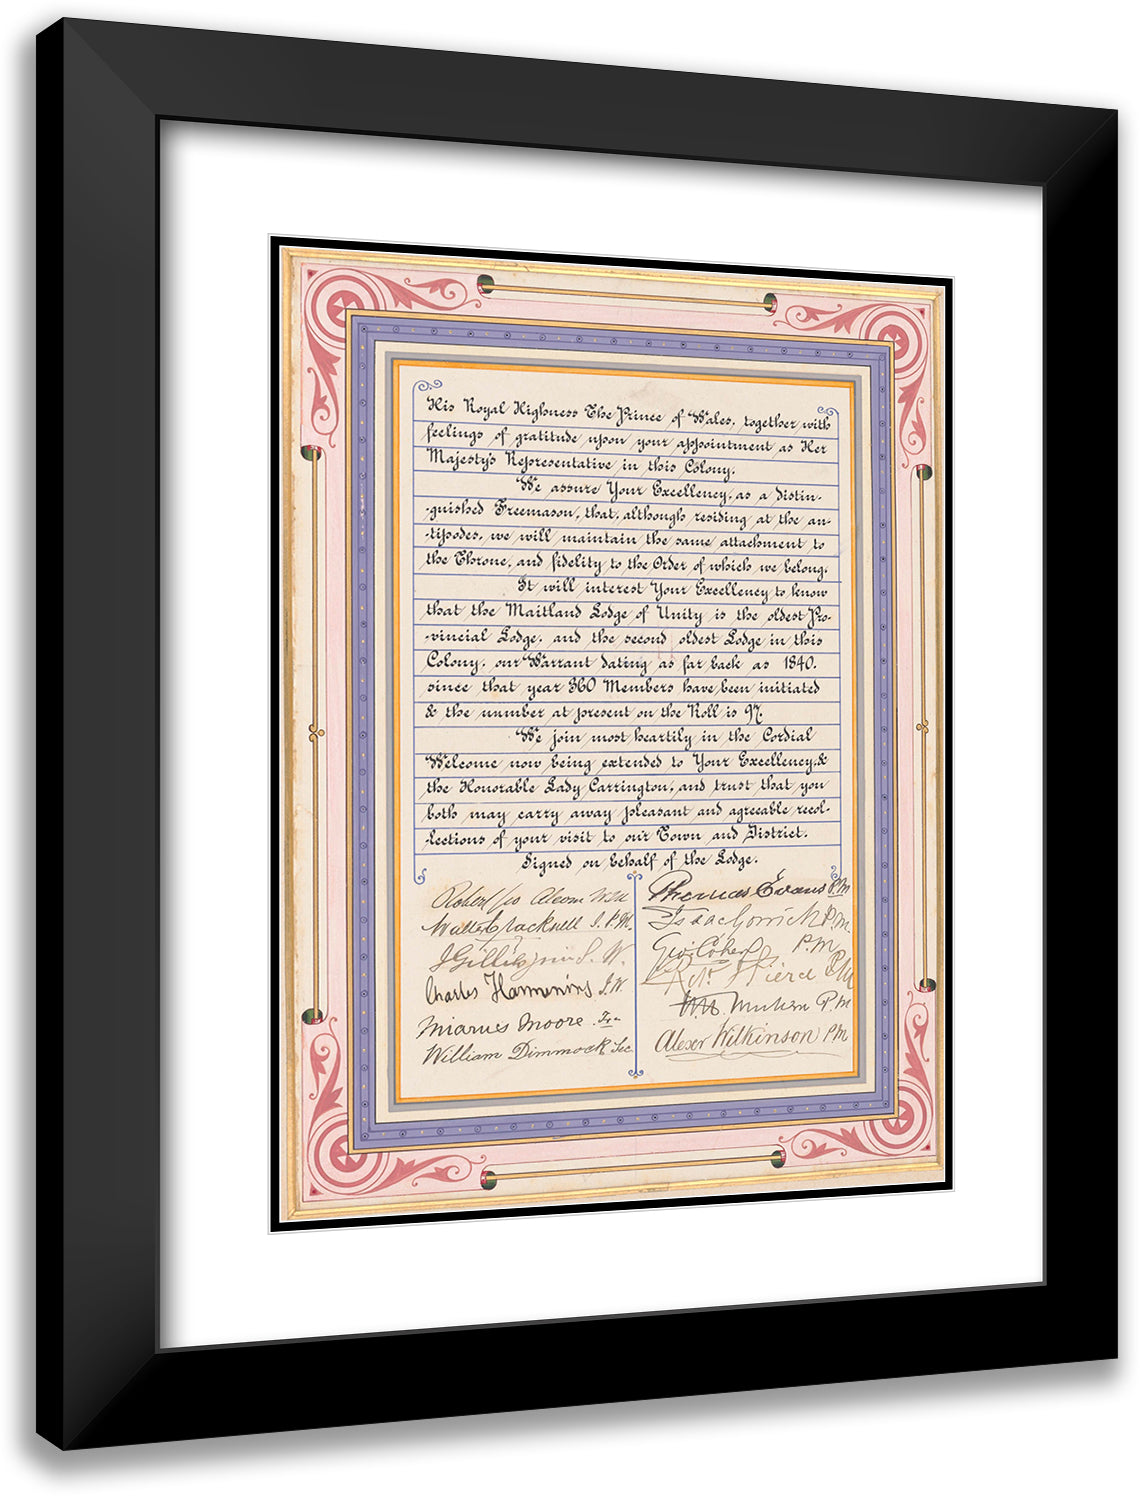 His Royal Highness The Prince of Wales, together with
feelings of gratitude upon your appointment as Her
Majesty's Representative in this Colony.
We assure Your Excellency, as a distin-
-guished Freemason, that, although residing at the an-
-tipodes, we will maintain the same attachment to
the Throne, and fidelity to the Order of which we belong.
It will interest Your Excellency to know
that the Maitland Lodge of Unity is the oldest Pro-
-vincial Lodge, and the second oldest Lodge in this
Colony, our Warrant dating as far back as 1840.
since that year 360 Members have been initiated
& the number at present on the Roll is 97.
We join most heartily in the Cordial
Welcome now being extended to Your Excellency, &
the Honorable Lady Carrington, and trust that you
both may carry away pleasant and agreeable recol-
-lections of your visit to our Town and District.
Signed on behalf of the Lodge.
Robert W.M
Walter Cracknell I.P.M.
S.W.
Charles J.W
Moore
William Dimmock Sec
Thomas Evans P.M
Isaac Gorrick P.M.
Geo. Cohen P.M
P.M
P.M
Alexr Wilkinson P.M